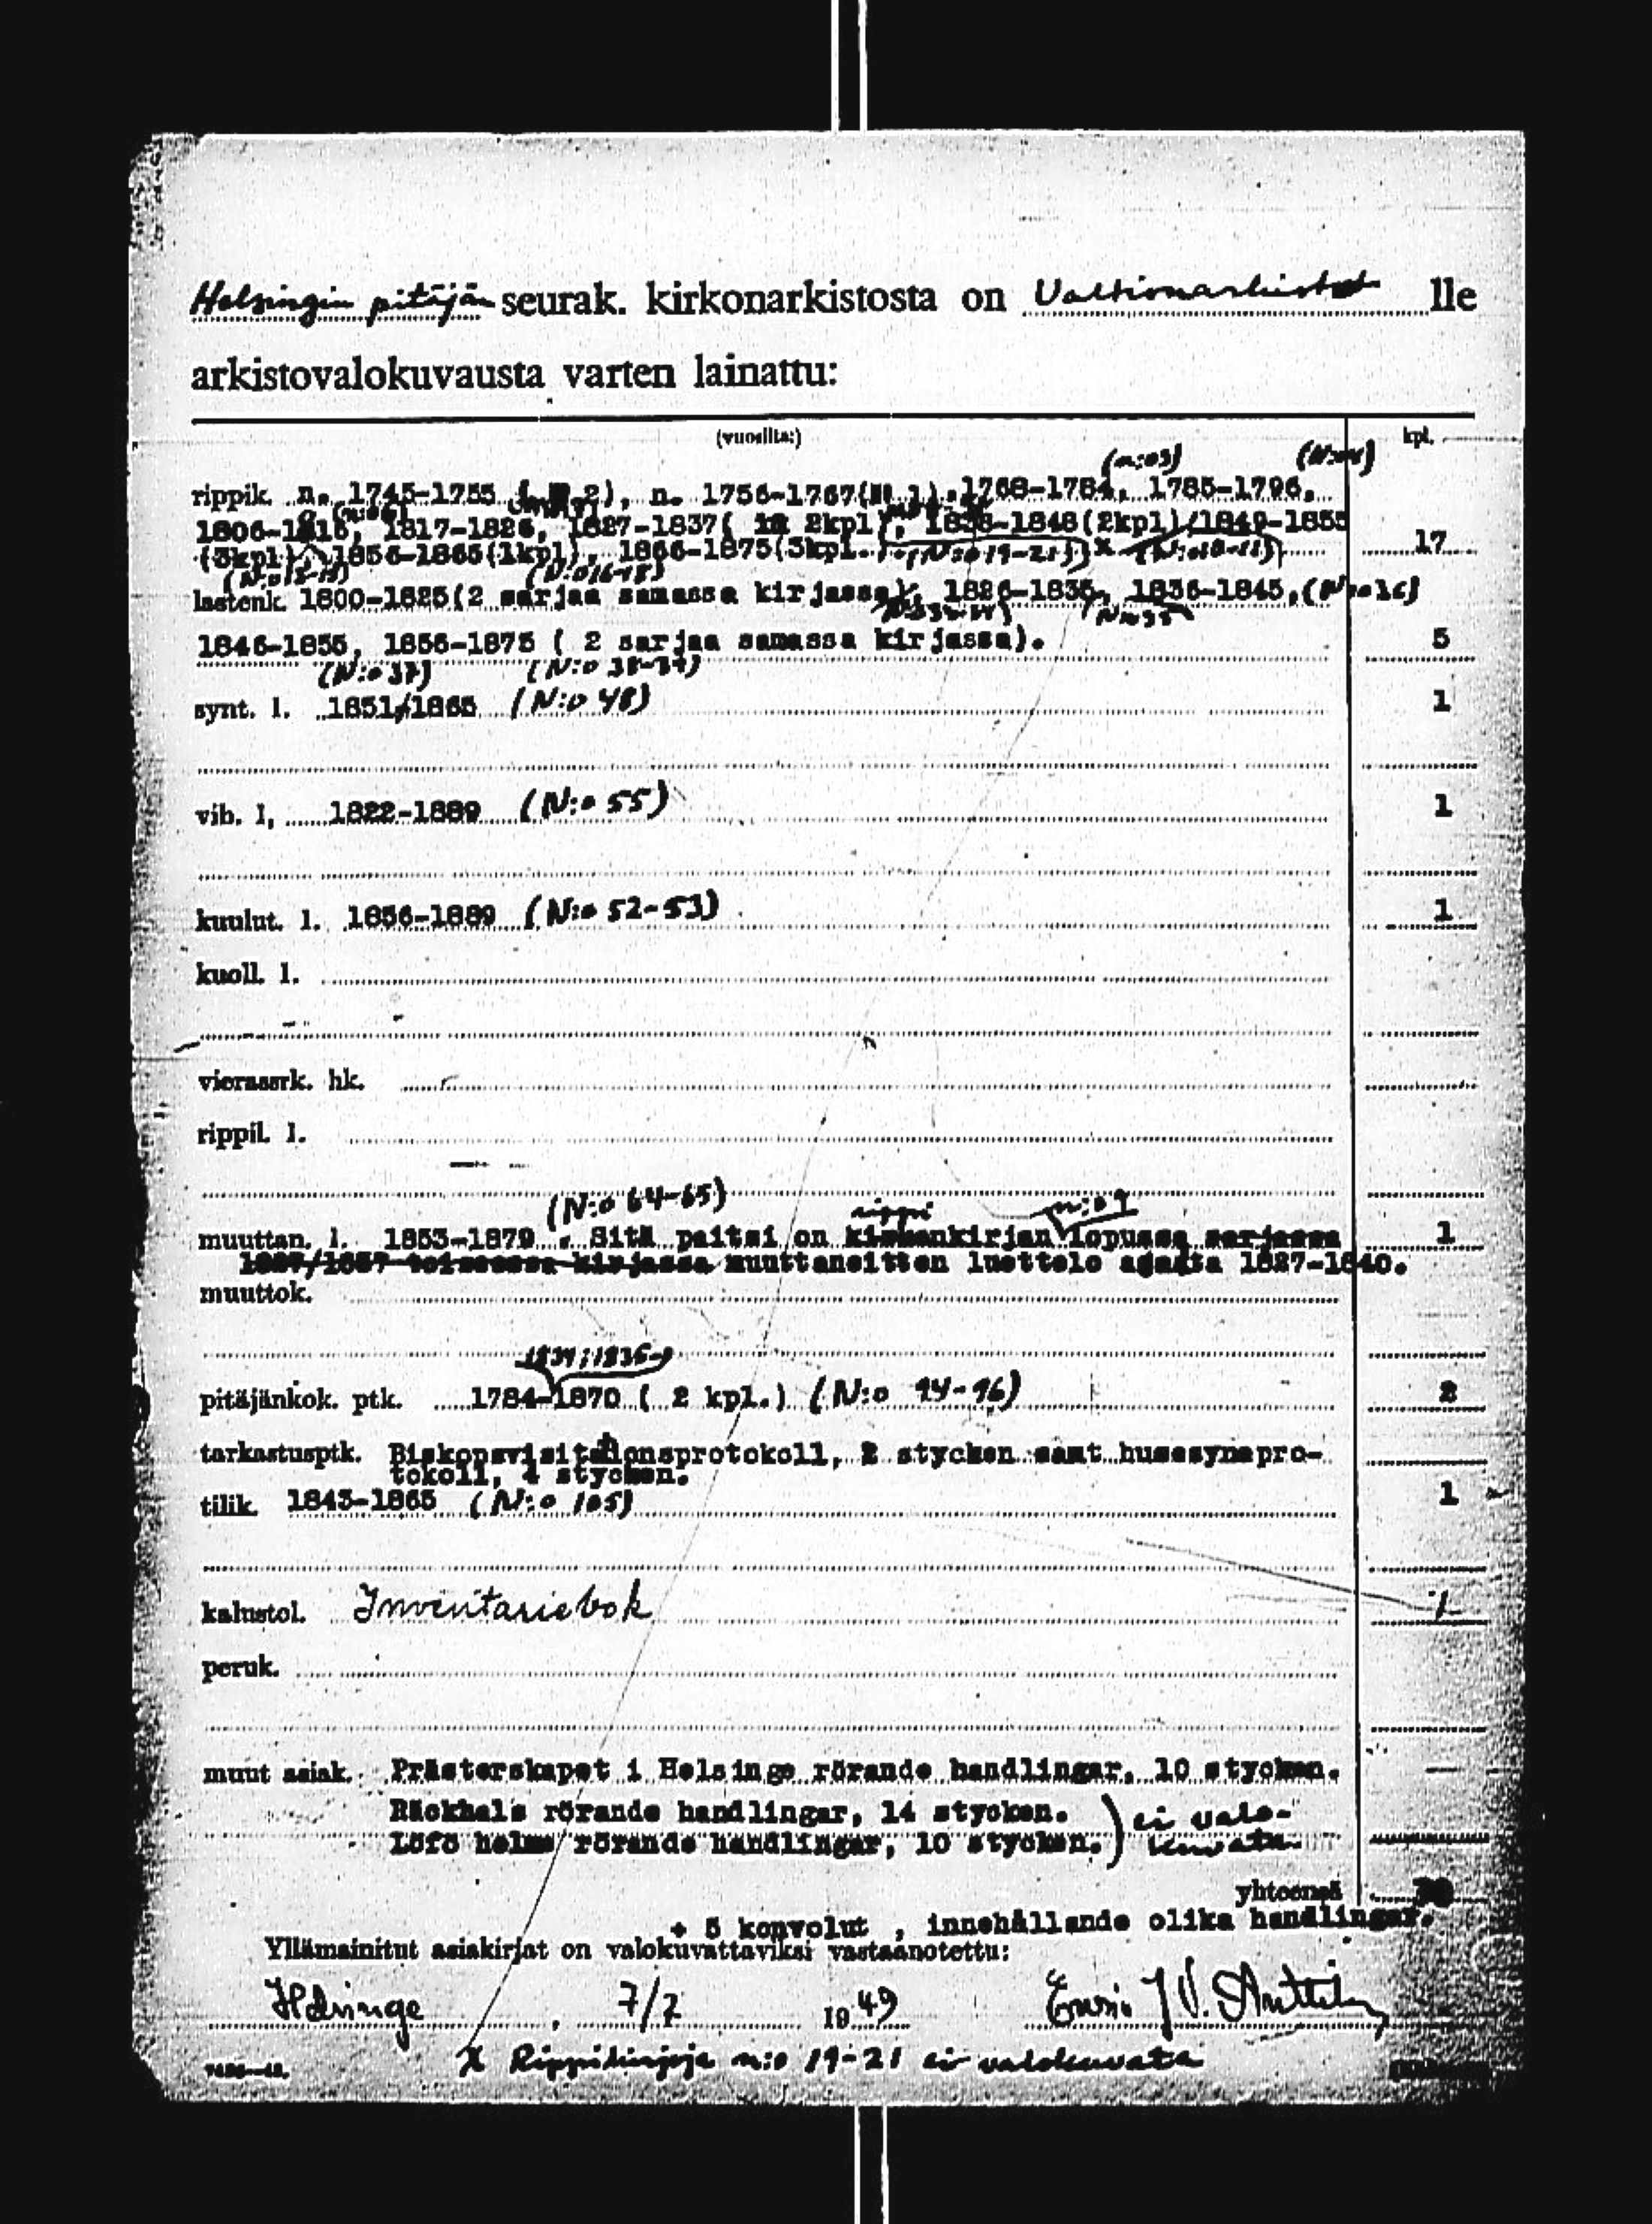 Helsingin pitäjän seurak. kirkonarkistosta on Valtionarkisto lle
arkistovalokuvausta varten lainattu:
(vuosilta:) kpl.
(n:o 3)
rippik. n. 1745-1755 ( 2), n. 1756-1767( 1), 1768-1784, 1785-1796,
1806-1816, 1817-1826, 1827-1837( 2kpl), 1838-1848(2kpl)/1849-1855
(3kpl), 1856-1865(1kpl), 1866-1875(3kpl.) (N:o 19-21) x 17
(N:o 16-18)
lastenk. 1800-1825(2 sarjaa samassa kirjassa), 1826-1835, 1836-1845,
1846-1855, 1856-1875 ( 2 sarjaa samassa kirjassa). 5
(N:o 37) (N:o 38-39)
synt. l. 1851/1865 (N:o 48) 1
vih. l, 1822-1889 (N:o 55) 1
kuulut. l. 1856-1889 (N:o 52-53) 1
kuoll. l.
vierassrk. hk.
rippil. l.
(N:o 64-65) rippi n:o 9
muuttan. l. 1853-1879 . Sitä paitsi on kirjan lopussa sarjassa 1
toisessa kirjassa muuttaneitten luettelo ajasta 1827-1840.
muuttok.
pitäjänkok. ptk. 1784-1870 ( 2 kpl.) (N:o 94-96) 2
tarkastusptk. Biskopsvisitationsprotokoll, 2 stycken samt husesynspro-
tokoll, 4 stycken.
tilik. 1843-1865 (N:o 105) 1
kalustol. Inventariebok 1
peruk.
muut asiak. Prästerskapet i Helsinge rörande handlingar, 10 stycken.
Räckhals rörande handlingar, 14 stycken. ) ei valo-
Löfö holme rörande handlingar, 10 stycken. ) kuvata
yhteensä
+ 5 konvolut , innehållande olika handlingar.
Yllämainitut asiakirjat on valokuvattaviksi vastaanotettu:
Helsinge , 7/2 1949
x Rippikirjoja n:o 19-21 ei valokuvata